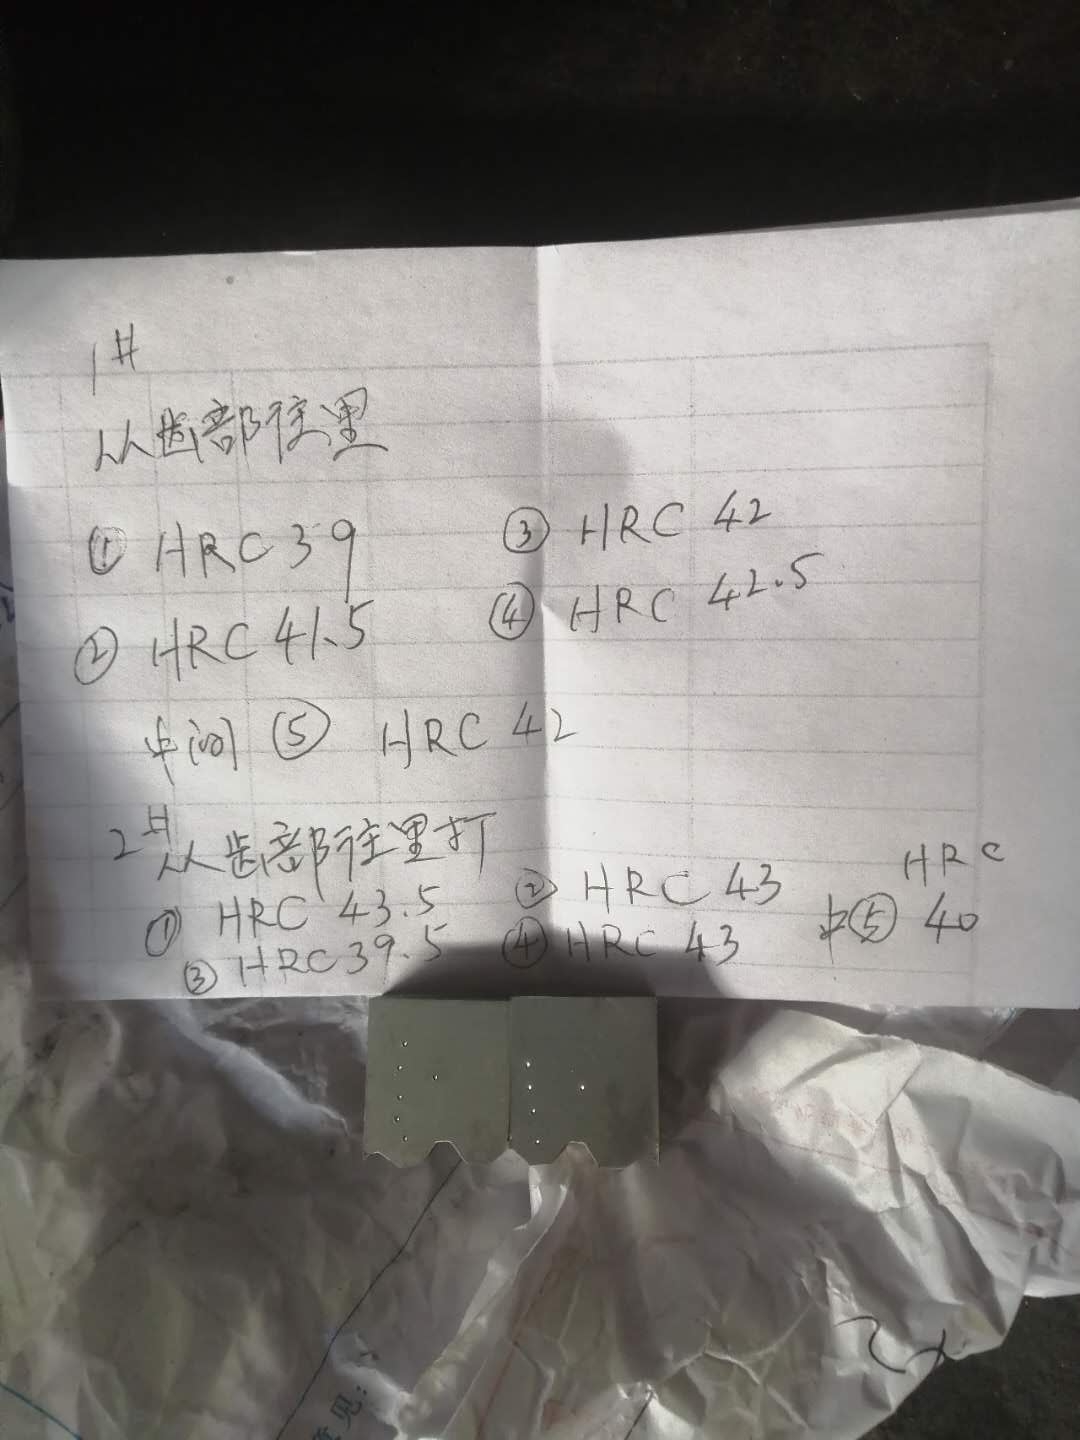 1#
从齿部往里
① HRC 39
③ HRC 42
② HRC 41.5
④ HRC 42.5
中间 ⑤ HRC 42
2# 从齿部往里打
① HRC 43.5
② HRC 43
③ HRC 39.5
④ HRC 43
中⑤ HRC 40
见: